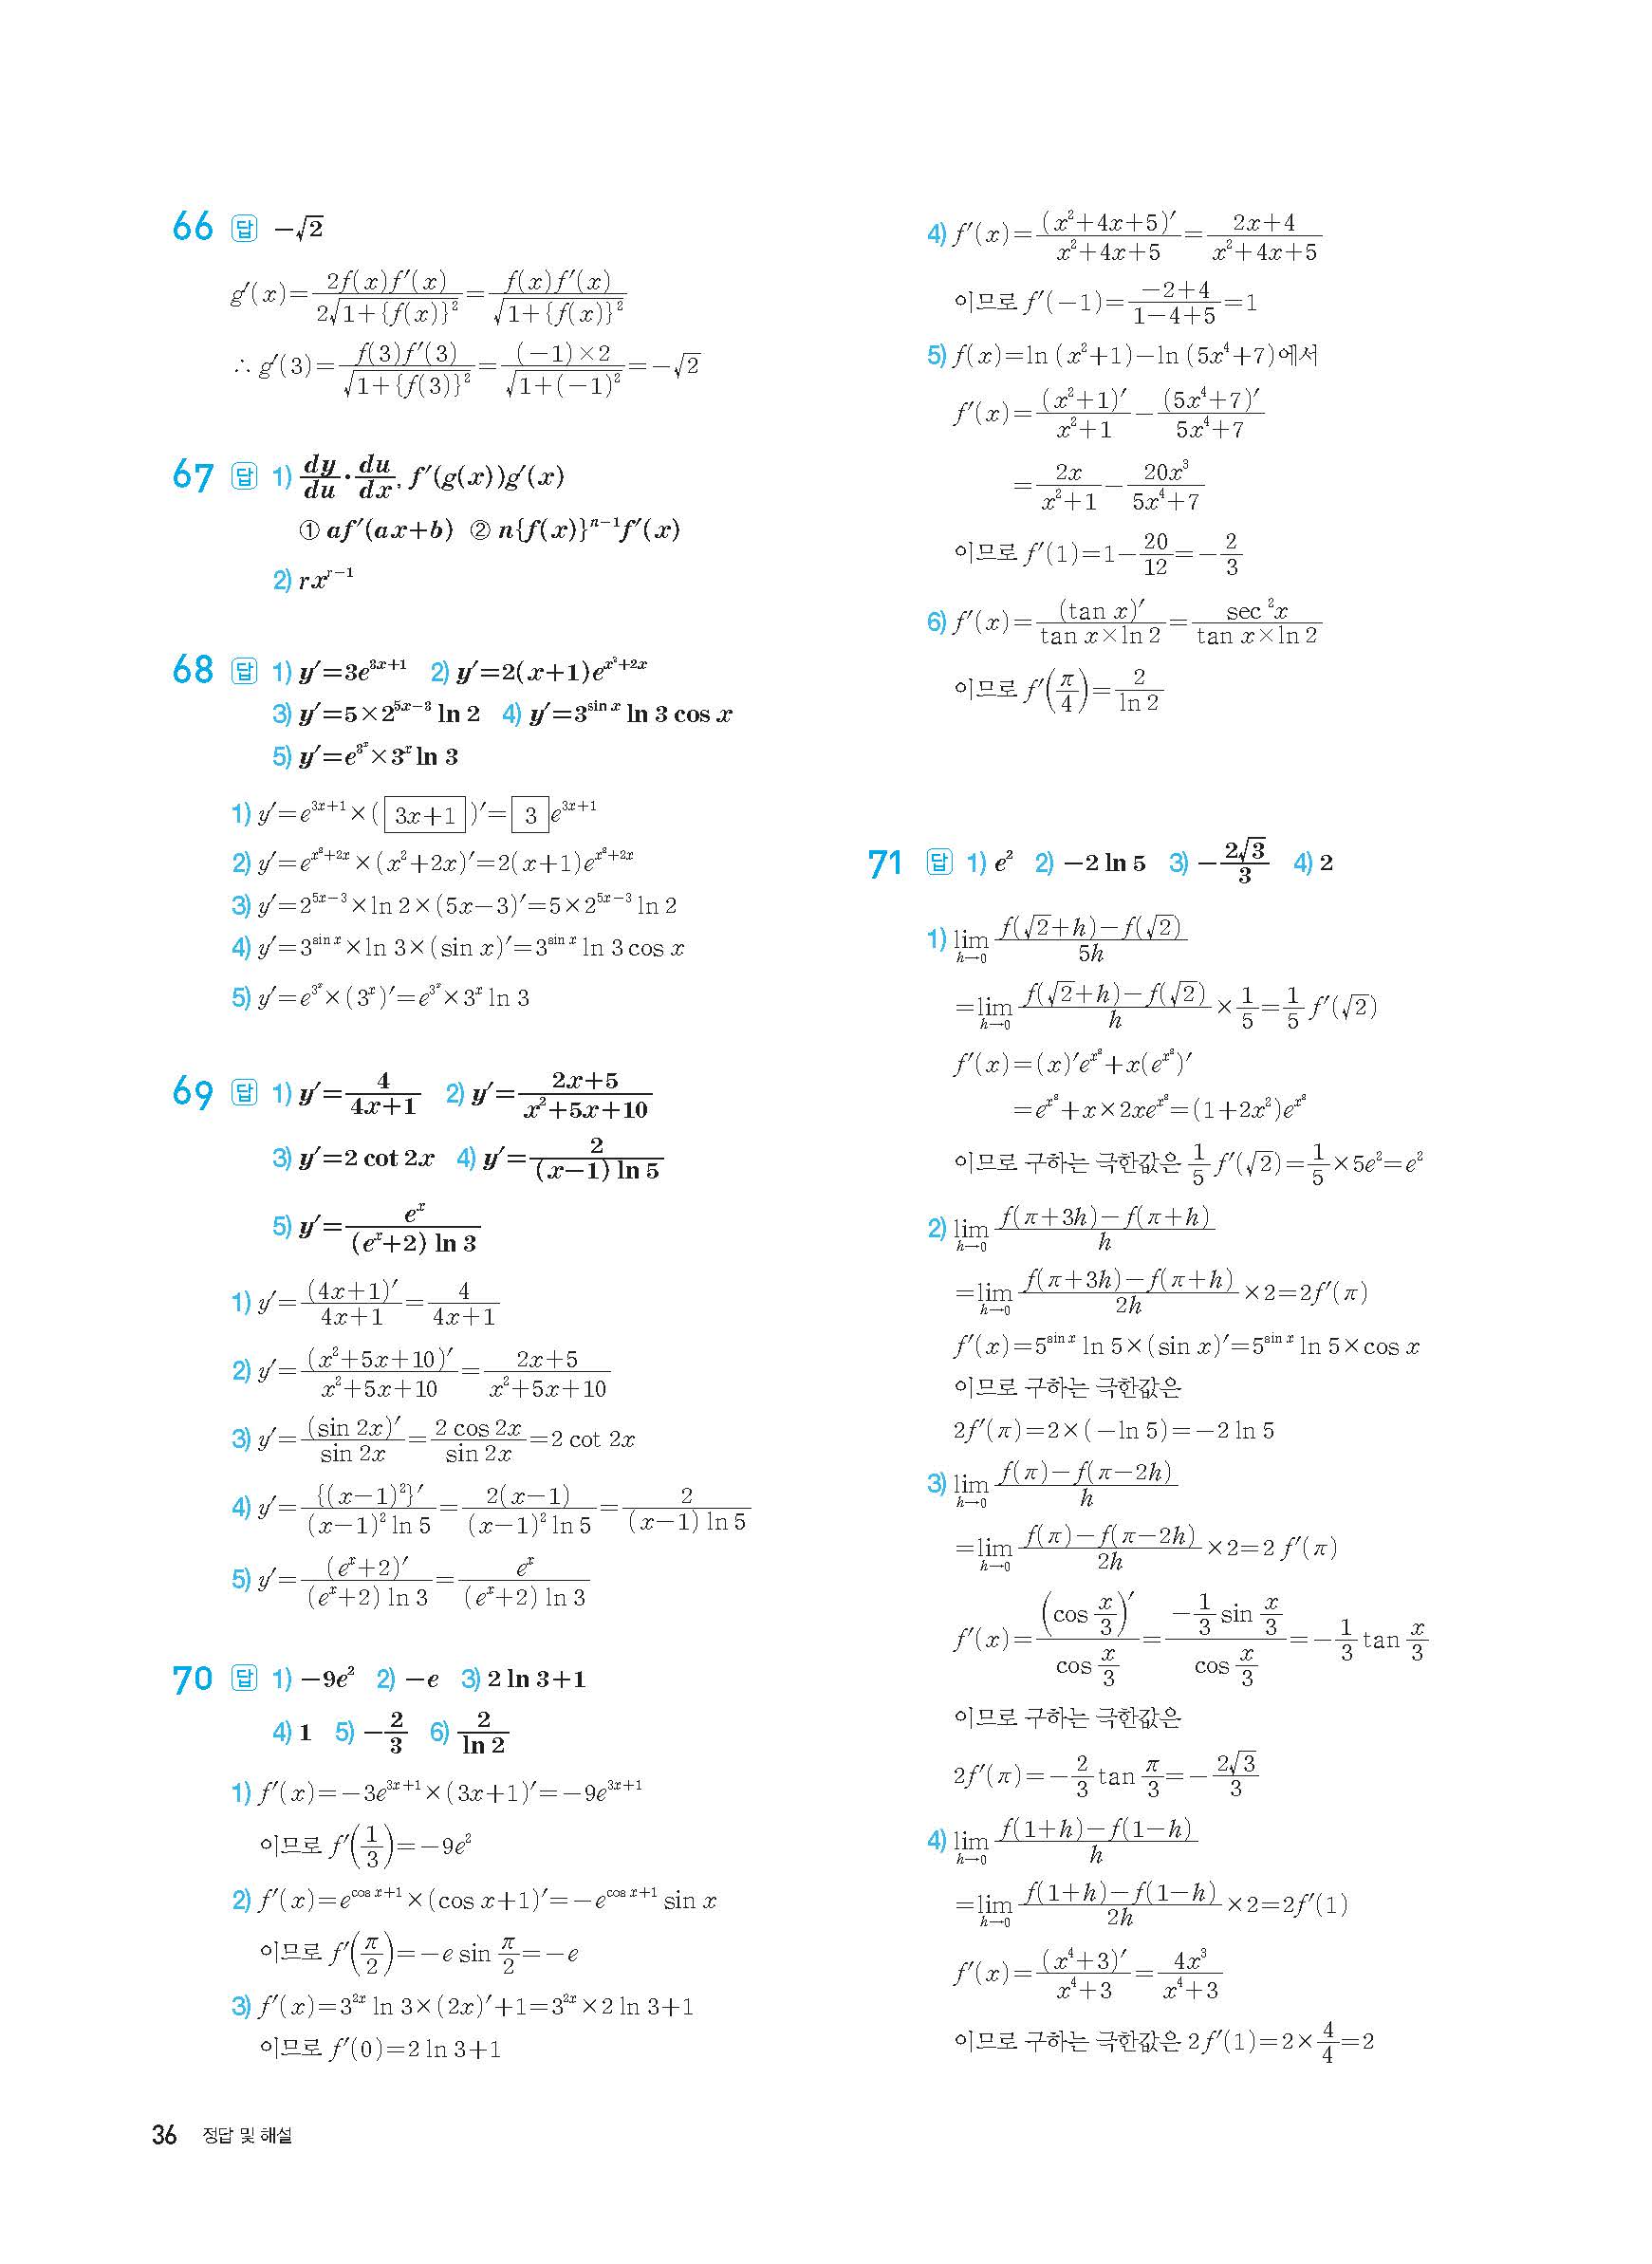 66 답 −√2
g′(x)=2f(x)f′(x)/2√(1+{f(x)}²)=f(x)f′(x)/√(1+{f(x)}²)
∴ g′(3)=f(3)f′(3)/√(1+{f(3)}²)=(−1)×2/√(1+(−1)²)=−√2
67 답 1) dy/du·du/dx, f′(g(x))g′(x)
① af′(ax+b) ② n{f(x)}ⁿ⁻¹f′(x)
2) rx^(r−1)
68 답 1) y′=3e^(3x+1) 2) y′=2(x+1)e^(x²+2x)
3) y′=5×2^(5x−3) ln 2 4) y′=3^(sin x) ln 3 cos x
5) y′=e^(3^x)×3^x ln 3
1) y′=e^(3x+1)×( 3x+1 )′= 3 e^(3x+1)
2) y′=e^(x²+2x)×(x²+2x)′=2(x+1)e^(x²+2x)
3) y′=2^(5x−3)×ln 2×(5x−3)′=5×2^(5x−3) ln 2
4) y′=3^(sin x)×ln 3×(sin x)′=3^(sin x) ln 3 cos x
5) y′=e^(3^x)×(3^x)′=e^(3^x)×3^x ln 3
69 답 1) y′=4/(4x+1) 2) y′=(2x+5)/(x²+5x+10)
3) y′=2 cot 2x 4) y′=2/((x−1) ln 5)
5) y′=e^x/((e^x+2) ln 3)
1) y′=(4x+1)′/(4x+1)=4/(4x+1)
2) y′=(x²+5x+10)′/(x²+5x+10)=(2x+5)/(x²+5x+10)
3) y′=(sin 2x)′/sin 2x=2 cos 2x/sin 2x=2 cot 2x
4) y′={(x−1)²}′/((x−1)² ln 5)=2(x−1)/((x−1)² ln 5)=2/((x−1) ln 5)
5) y′=(e^x+2)′/((e^x+2) ln 3)=e^x/((e^x+2) ln 3)
70 답 1) −9e² 2) −e 3) 2 ln 3+1
4) 1 5) −2/3 6) 2/ln 2
1) f′(x)=−3e^(3x+1)×(3x+1)′=−9e^(3x+1)
이므로 f′(1/3)=−9e²
2) f′(x)=e^(cos x+1)×(cos x+1)′=−e^(cos x+1) sin x
이므로 f′(π/2)=−e sin π/2=−e
3) f′(x)=3^(2x) ln 3×(2x)′+1=3^(2x)×2 ln 3+1
이므로 f′(0)=2 ln 3+1
4) f′(x)=(x²+4x+5)′/(x²+4x+5)=(2x+4)/(x²+4x+5)
이므로 f′(−1)=(−2+4)/(1−4+5)=1
5) f(x)=ln (x²+1)−ln (5x⁴+7)에서
f′(x)=(x²+1)′/(x²+1)−(5x⁴+7)′/(5x⁴+7)
=2x/(x²+1)−20x³/(5x⁴+7)
이므로 f′(1)=1−20/12=−2/3
6) f′(x)=(tan x)′/(tan x×ln 2)=sec²x/(tan x×ln 2)
이므로 f′(π/4)=2/ln 2
71 답 1) e² 2) −2 ln 5 3) −2√3/3 4) 2
1) lim h→0 (f(√2+h)−f(√2))/5h
=lim h→0 (f(√2+h)−f(√2))/h×1/5=1/5 f′(√2)
f′(x)=(x)′e^(x²)+x(e^(x²))′
=e^(x²)+x×2xe^(x²)=(1+2x²)e^(x²)
이므로 구하는 극한값은 1/5 f′(√2)=1/5×5e²=e²
2) lim h→0 (f(π+3h)−f(π+h))/h
=lim h→0 (f(π+3h)−f(π+h))/2h×2=2f′(π)
f′(x)=5^(sin x) ln 5×(sin x)′=5^(sin x) ln 5×cos x
이므로 구하는 극한값은
2f′(π)=2×(−ln 5)=−2 ln 5
3) lim h→0 (f(π)−f(π−2h))/h
=lim h→0 (f(π)−f(π−2h))/2h×2=2 f′(π)
f′(x)=(cos x/3)′/(cos x/3)=(−1/3 sin x/3)/(cos x/3)=−1/3 tan x/3
이므로 구하는 극한값은
2f′(π)=−2/3 tan π/3=−2√3/3
4) lim h→0 (f(1+h)−f(1−h))/h
=lim h→0 (f(1+h)−f(1−h))/2h×2=2f′(1)
f′(x)=(x⁴+3)′/(x⁴+3)=4x³/(x⁴+3)
이므로 구하는 극한값은 2f′(1)=2×4/4=2
36 정답 및 해설